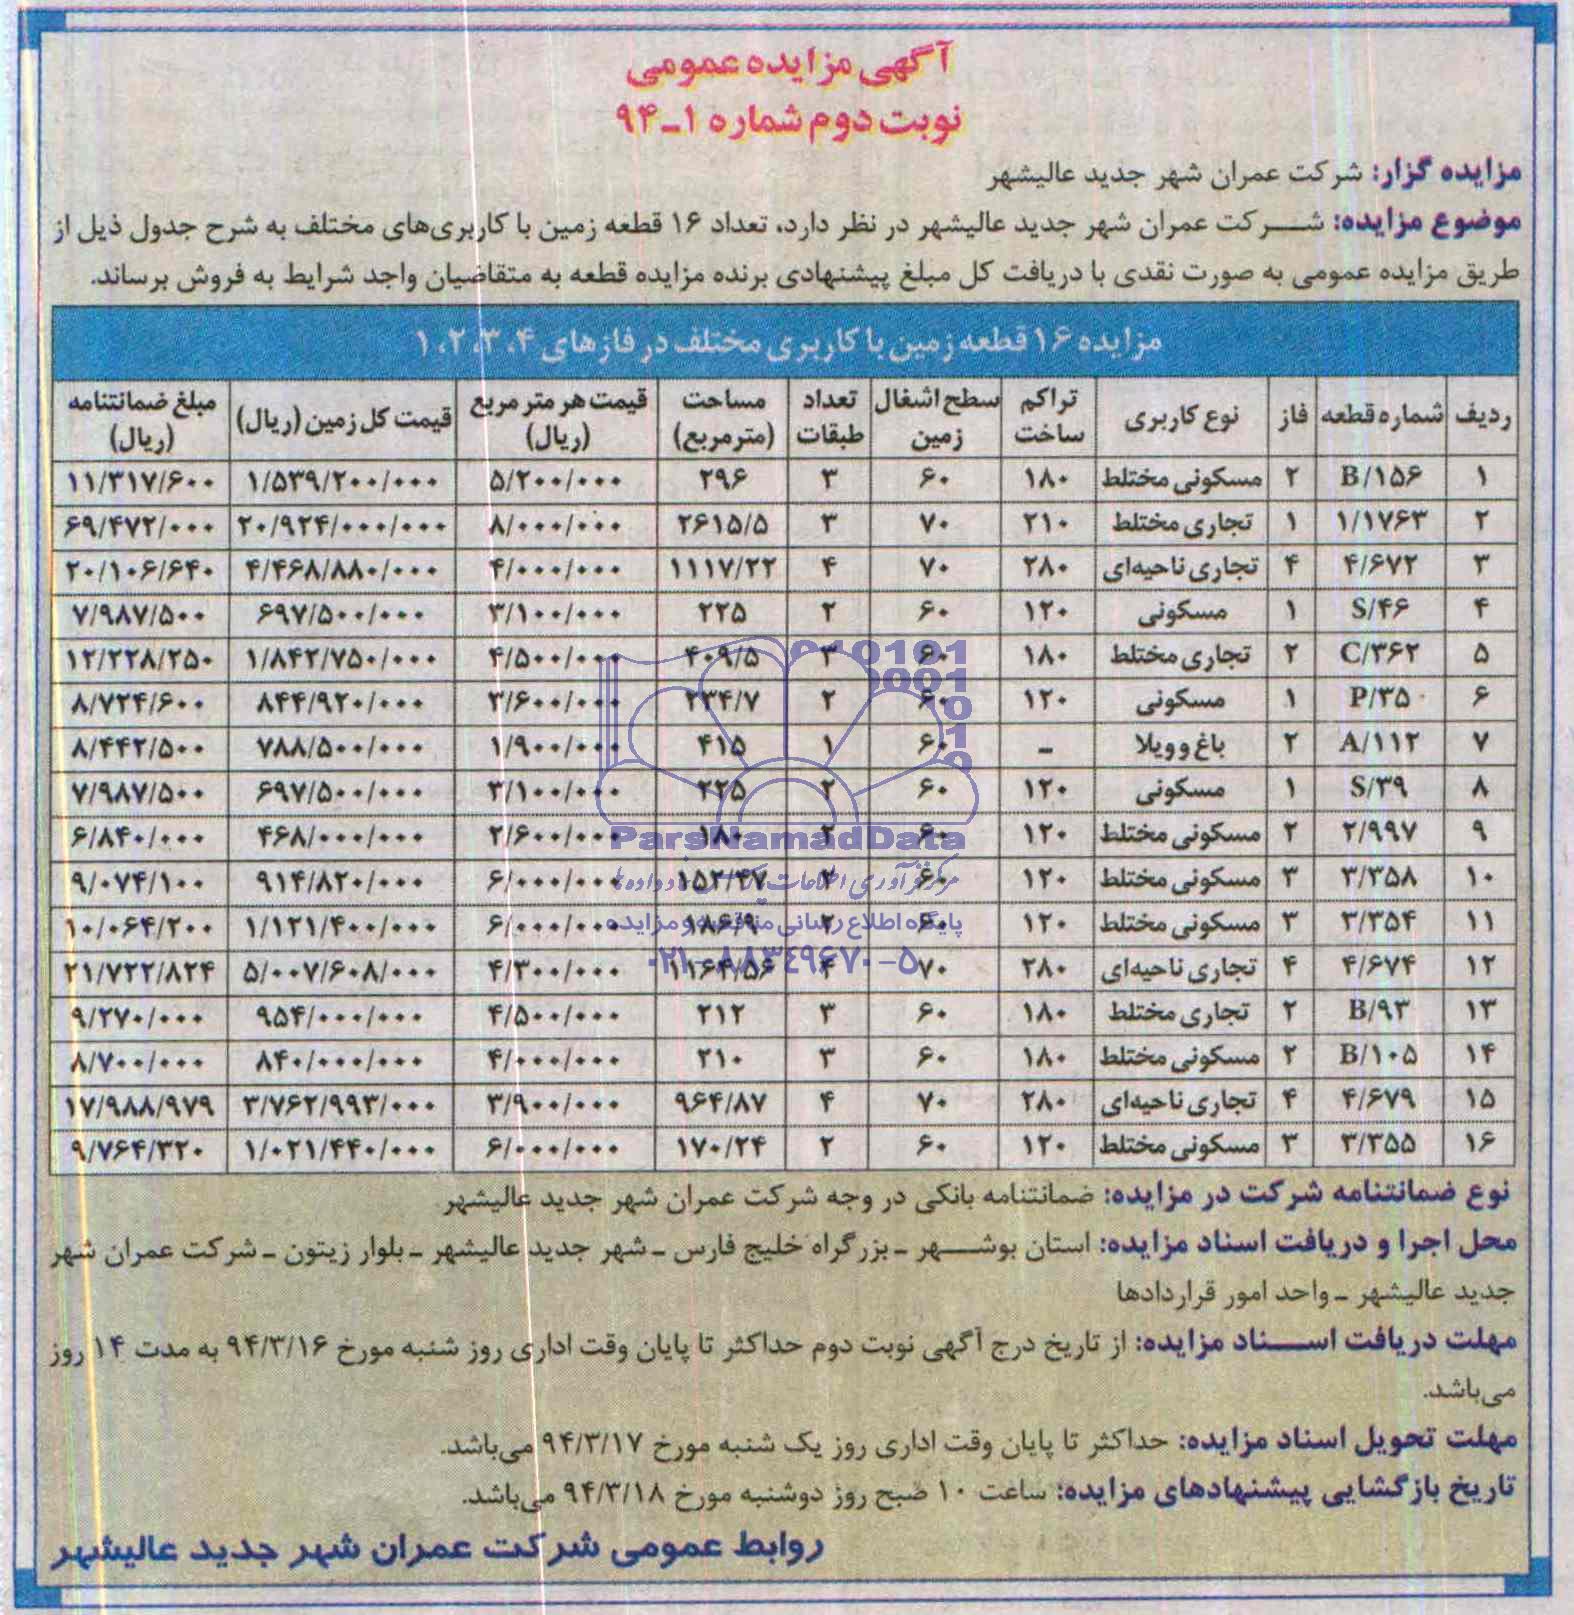 آگهی مزایده عمومی
نوبت دوم شماره ۱ـ۹۴
مزایده گزار: شرکت عمران شهر جدید عالیشهر
موضوع مزایده: شرکت عمران شهر جدید عالیشهر در نظر دارد، تعداد ۱۶ قطعه زمین با کاربری‌های مختلف به شرح جدول ذیل از
طریق مزایده عمومی به صورت نقدی با دریافت کل مبلغ پیشنهادی برنده مزایده قطعه به متقاضیان واجد شرایط به فروش برساند.
مزایده ۱۶ قطعه زمین با کاربری مختلف در فازهای ۴، ۳، ۲، ۱
ردیف شماره قطعه فاز نوع کاربری تراکم ساخت سطح اشغال زمین تعداد طبقات مساحت (مترمربع) قیمت هر متر مربع (ریال) قیمت کل زمین (ریال) مبلغ ضمانتنامه (ریال)
۱ B/۱۵۶ ۲ مسکونی مختلط ۱۸۰ ۶۰ ۳ ۲۹۶ ۵/۲۰۰/۰۰۰ ۱/۵۳۹/۲۰۰/۰۰۰ ۱۱/۳۱۷/۶۰۰
۲ ۱/۱۷۶۳ ۱ تجاری مختلط ۲۱۰ ۷۰ ۳ ۲۶۱۵/۵ ۸/۰۰۰/۰۰۰ ۲۰/۹۲۴/۰۰۰/۰۰۰ ۶۹/۴۷۲/۰۰۰
۳ ۴/۶۷۲ ۴ تجاری ناحیه‌ای ۲۸۰ ۷۰ ۴ ۱۱۱۷/۲۲ ۴/۰۰۰/۰۰۰ ۴/۴۶۸/۸۸۰/۰۰۰ ۲۰/۱۰۶/۶۴۰
۴ S/۴۶ ۱ مسکونی ۱۲۰ ۶۰ ۲ ۲۲۵ ۳/۱۰۰/۰۰۰ ۶۹۷/۵۰۰/۰۰۰ ۷/۹۸۷/۵۰۰
۵ C/۳۶۲ ۲ تجاری مختلط ۱۸۰ ۶۰ ۳ ۴۰۹/۵ ۴/۵۰۰/۰۰۰ ۱/۸۴۲/۷۵۰/۰۰۰ ۱۲/۲۲۸/۲۵۰
۶ P/۳۵ ۱ مسکونی ۱۲۰ ۶۰ ۲ ۲۳۴/۷ ۳/۶۰۰/۰۰۰ ۸۴۴/۹۲۰/۰۰۰ ۸/۷۲۴/۶۰۰
۷ A/۱۱۲ ۲ باغ و ویلا - ۶۰ ۱ ۴۱۵ ۱/۹۰۰/۰۰۰ ۷۸۸/۵۰۰/۰۰۰ ۸/۴۴۲/۵۰۰
۸ S/۳۹ ۱ مسکونی ۱۲۰ ۶۰ ۲ ۲۲۵ ۳/۱۰۰/۰۰۰ ۶۹۷/۵۰۰/۰۰۰ ۷/۹۸۷/۵۰۰
۹ ۲/۹۹۷ ۲ مسکونی مختلط ۱۲۰ ۶۰ ۲ ۱۸۰ ۲/۶۰۰/۰۰۰ ۴۶۸/۰۰۰/۰۰۰ ۶/۸۴۰/۰۰۰
۱۰ ۳/۳۵۸ ۳ مسکونی مختلط ۱۲۰ ۶۰ ۲ ۱۵۲/۴۷ ۶/۰۰۰/۰۰۰ ۹۱۴/۸۲۰/۰۰۰ ۹/۰۷۴/۱۰۰
۱۱ ۳/۳۵۴ ۳ مسکونی مختلط ۱۲۰ ۶۰ ۲ ۱۸۶/۹ ۶/۰۰۰/۰۰۰ ۱/۱۲۱/۴۰۰/۰۰۰ ۱۰/۰۶۴/۲۰۰
۱۲ ۴/۶۷۴ ۴ تجاری ناحیه‌ای ۲۸۰ ۷۰ ۴ ۱۱۶۴/۵۶ ۴/۳۰۰/۰۰۰ ۵/۰۰۷/۶۰۸/۰۰۰ ۲۱/۷۲۲/۸۲۴
۱۳ B/۹۳ ۲ تجاری مختلط ۱۸۰ ۶۰ ۳ ۲۱۲ ۴/۵۰۰/۰۰۰ ۹۵۴/۰۰۰/۰۰۰ ۹/۲۷۰/۰۰۰
۱۴ B/۱۰۵ ۲ مسکونی مختلط ۱۸۰ ۶۰ ۳ ۲۱۰ ۴/۰۰۰/۰۰۰ ۸۴۰/۰۰۰/۰۰۰ ۸/۷۰۰/۰۰۰
۱۵ ۴/۶۷۹ ۴ تجاری ناحیه‌ای ۲۸۰ ۷۰ ۴ ۹۶۴/۸۷ ۳/۹۰۰/۰۰۰ ۳/۷۶۲/۹۹۳/۰۰۰ ۱۷/۹۸۸/۹۷۹
۱۶ ۳/۳۵۵ ۳ مسکونی مختلط ۱۲۰ ۶۰ ۲ ۱۷۰/۲۴ ۶/۰۰۰/۰۰۰ ۱/۰۲۱/۴۴۰/۰۰۰ ۹/۷۶۴/۳۲۰
ParsNamadData
پایگاه اطلاع رسانی مناقصه و مزایده
۰۲۱-۸۸۳٤۹۶۷۰-۵
نوع ضمانتنامه شرکت در مزایده: ضمانتنامه بانکی در وجه شرکت عمران شهر جدید عالیشهر
محل اجرا و دریافت اسناد مزایده: استان بوشهر ـ بزرگراه خلیج فارس ـ شهر جدید عالیشهر ـ بلوار زیتون ـ شرکت عمران شهر
جدید عالیشهر ـ واحد امور قراردادها
مهلت دریافت اسناد مزایده: از تاریخ درج آگهی نوبت دوم حداکثر تا پایان وقت اداری روز شنبه مورخ ۹۴/۳/۱۶ به مدت ۱۴ روز
می‌باشد.
مهلت تحویل اسناد مزایده: حداکثر تا پایان وقت اداری روز یک شنبه مورخ ۹۴/۳/۱۷ می‌باشد.
تاریخ بازگشایی پیشنهادهای مزایده: ساعت ۱۰ صبح روز دوشنبه مورخ ۹۴/۳/۱۸ می‌باشد.
روابط عمومی شرکت عمران شهر جدید عالیشهر